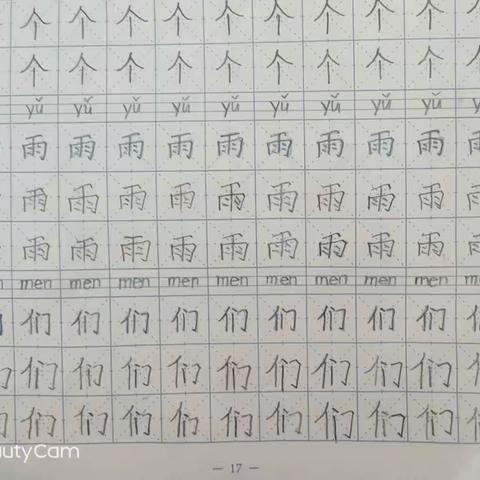 个 个 个 个 个 个 个 个 个
个 个 个 个 个 个 个 个 个
yǔ yǔ yǔ yǔ yǔ yǔ yǔ yǔ yǔ
雨 雨 雨 雨 雨 雨 雨 雨 雨
雨 雨 雨 雨 雨 雨 雨 雨 雨
雨 雨 雨 雨 雨 雨 雨 雨 雨
men men men men men men men men men
们 们 们 们 们 们 们 们 们
们 们 们 们 们 们 们 们 们
们 们 们 们 们 们 们 们 们
autyCam
— 17 —